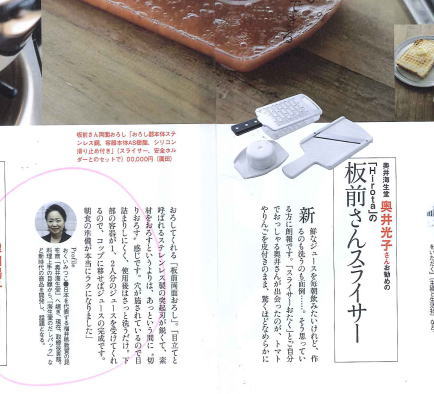 板前さん両面おろし「おろし器本体ステン
レス鋼、容器本体AS樹脂、シリコン
滑り止め付き」(スライサー、安全ホル
ダーとのセットで)00,000円(廣田)
奥井海生堂 奥井光子さんお勧めの
「Hirota」の
板前さんスライサー
新鮮なジュースを毎朝飲みたいけれど、作
るのも洗うのも面倒……。そう思ってい
る方に朗報です。「スライサーおたく」とご自分
でおっしゃる奥井さんが出会ったのが、トマト
やりんごを皮付きのまま、驚くほどなめらかに
おろしてくれる「板前両面おろし」。「目立てと
呼ばれるステンレス製の突起刃が鋭くて、素
材をおろすというよりは、あっという間に"切
りおろす"感じです。穴が施されているので目
詰まりしにくく、使用後はさっと洗うだけ。下
部の容器が1、2人分のジュースを受けてくれ
るので、コップに移せばジュースの完成です。
朝食の準備が本当にラクになりました」
Profile
おくいみつこ●日本を代表する福井県敦賀の昆
布商「奥井海生堂」